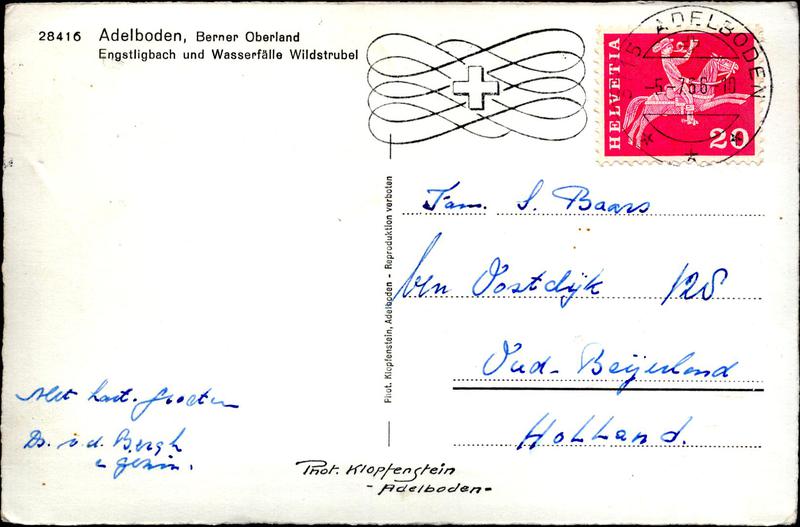 28416 Adelboden, Berner Oberland
Engstligbach und Wasserfälle Wildstrubel
HELVETIA
20
ADELBODEN
-5.-7.66.-10
Phot. Klopfenstein, Adelboden - Reproduktion verboten
Fam. S. Baars
Oostdijk 128
Oud-Beijerland
Holland.
Met hart. groeten
Ds. v.d. Bergh
Phot. Klopfenstein
- Adelboden -